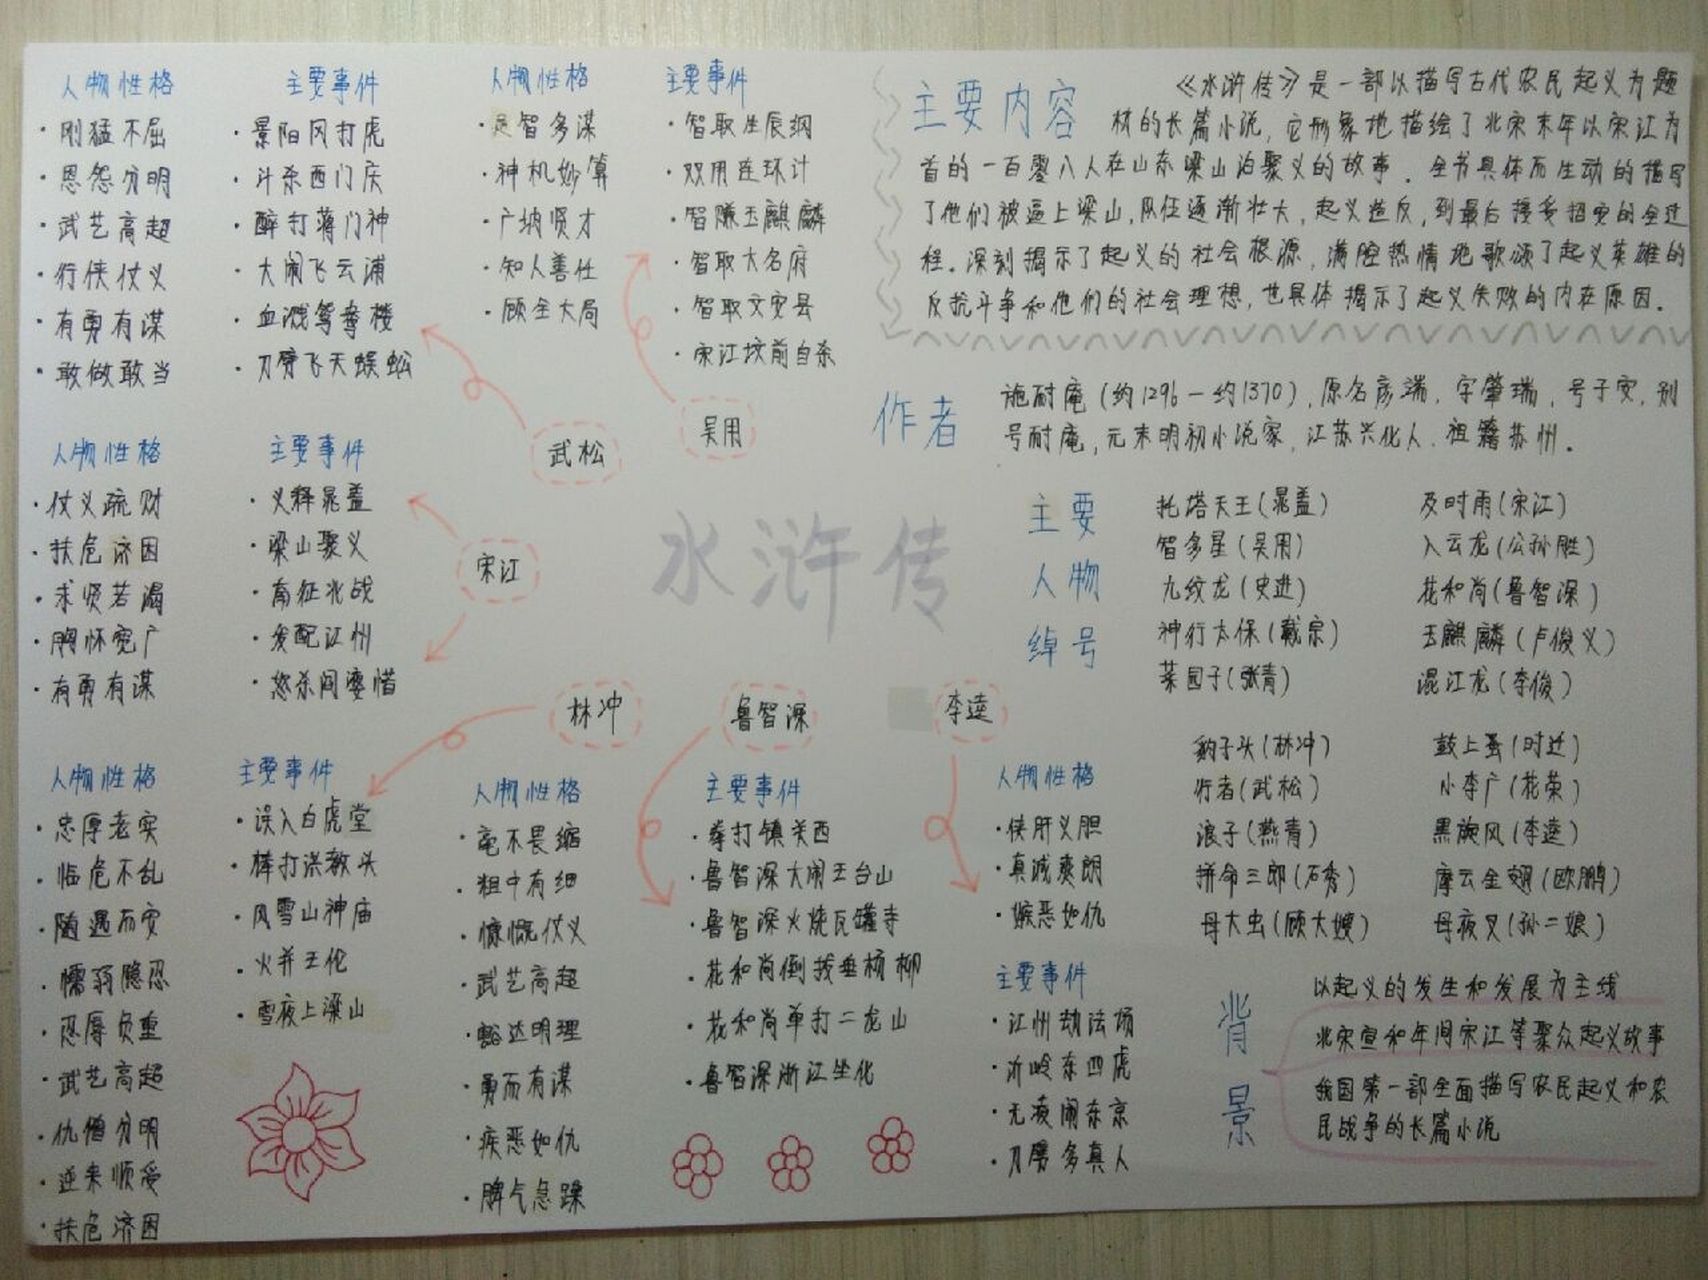 人物性格
·刚猛不屈
·恩怨分明
·武艺高超
·行侠仗义
·有勇有谋
·敢做敢当
主要事件
·景阳冈打虎
·斗杀西门庆
·醉打蒋门神
·大闹飞云浦
·血溅鸳鸯楼
·刀劈飞天蜈蚣
武松
人物性格
·足智多谋
·神机妙算
·广纳贤才
·知人善任
·顾全大局
主要事件
·智取生辰纲
·双用连环计
·智赚玉麒麟
·智取大名府
·智取文安县
·宋江坟前自杀
吴用
人物性格
·仗义疏财
·扶危济困
·求贤若渴
·胸怀宽广
·有勇有谋
主要事件
·义释晁盖
·梁山聚义
·南征北战
·发配江州
·怒杀阎婆惜
宋江
水浒传
林冲
鲁智深
李逵
人物性格
·忠厚老实
·临危不乱
·随遇而安
·懦弱隐忍
·忍辱负重
·武艺高超
·仇憎分明
·逆来顺受
·扶危济困
主要事件
·误入白虎堂
·棒打洪教头
·风雪山神庙
·火并王伦
·雪夜上梁山
人物性格
·毫不畏缩
·粗中有细
·慷慨仗义
·武艺高超
·豁达明理
·勇而有谋
·疾恶如仇
·脾气急躁
主要事件
·拳打镇关西
·鲁智深大闹五台山
·鲁智深火烧瓦罐寺
·花和尚倒拔垂杨柳
·花和尚单打二龙山
·鲁智深浙江坐化
人物性格
·侠肝义胆
·真诚爽朗
·嫉恶如仇
主要事件
·江州劫法场
·沂岭杀四虎
·元夜闹东京
·刀劈多真人
主要内容
《水浒传》是一部以描写古代农民起义为题
材的长篇小说,它形象地描绘了北宋末年以宋江为
首的一百零八人在山东梁山泊聚义的故事.全书具体而生动的描写
了他们被逼上梁山,队伍逐渐壮大,起义造反,到最后接受招安的全过
程.深刻揭示了起义的社会根源,满腔热情地歌颂了起义英雄的
反抗斗争和他们的社会理想,也具体揭示了起义失败的内在原因.
作者
施耐庵(约1296-约1370),原名彦端,字肇瑞,号子安,别
号耐庵,元末明初小说家,江苏兴化人.祖籍苏州.
主要
人物
绰号
托塔天王(晁盖) 及时雨(宋江)
智多星(吴用) 入云龙(公孙胜)
九纹龙(史进) 花和尚(鲁智深)
神行太保(戴宗) 玉麒麟(卢俊义)
菜园子(张青) 混江龙(李俊)
豹子头(林冲) 鼓上蚤(时迁)
行者(武松) 小李广(花荣)
浪子(燕青) 黑旋风(李逵)
拼命三郎(石秀) 摩云金翅(欧鹏)
母大虫(顾大嫂) 母夜叉(孙二娘)
背景
以起义的发生和发展为主线
北宋宣和年间宋江等聚众起义故事
我国第一部全面描写农民起义和农
民战争的长篇小说